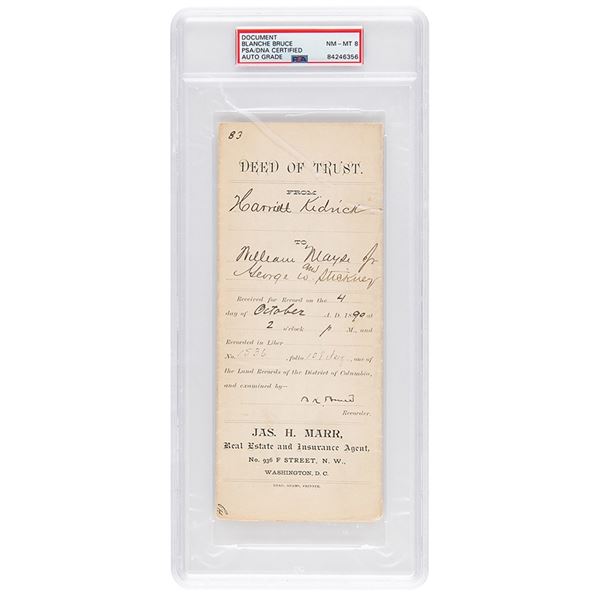 DOCUMENT
BLANCHE BRUCE NM - MT 8
PSA/DNA CERTIFIED
AUTO GRADE PSA 84246356
83
DEED OF TRUST.
FROM
Harriett Kidrick
TO
William Mayse Jr
and
George W. Stickney
Received for Record on the 4
day of October A. D. 1890 at
2 o'clock p M., and
Recorded in Liber
No. 1536, folio 108 , one of
the Land Records of the District of Columbia,
and examined by—
B. K. Bruce
Recorder.
JAS. H. MARR,
Real Estate and Insurance Agent,
No. 936 F STREET, N. W.,
WASHINGTON, D. C.